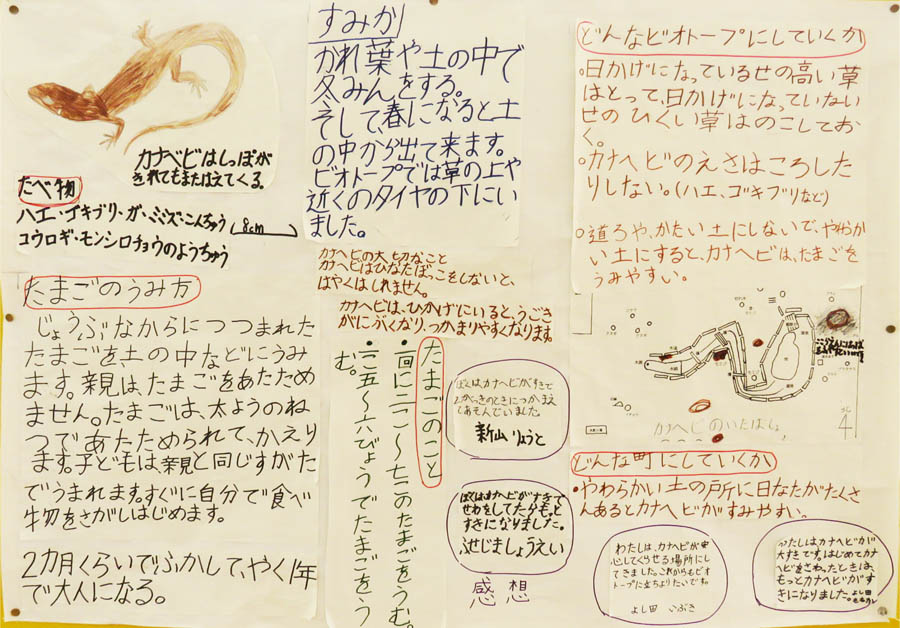 カナヘビはしっぽが
きれてもまたはえてくる。
たべ物
ハエ・ゴキブリ・ガ・ミミズ・こんちゅう
8cm
コウロギ・モンシロチョウのようちゅう
たまごのうみ方
じょうぶなからにつつまれた
たまごを土の中などにうみ
ます。親は、たまごをあたため
ません。たまごは、太ようのね
つであたためられて、かえり
ます。子どもは親と同じすがた
でうまれます。すぐに自分で食べ
物をさがしはじめます。
2カ月くらいでふかして、やく1年
で大人になる。
すみか
かれ葉や土の中で
冬みんをする。
そして、春になると土
の中から出て来ます。
ビオトープでは草の上や
近くのタイヤの下にい
ました。
カナヘビの大切なこと
カナヘビはひなたぼっこをしないと、
はやくはしれません。
カナヘビは、ひかげにいると、うごき
がにぶくなり、つかまりやすくなります。
たまごのこと
・一回に二～七このたまごをうむ。
・二五～六びょうでたまごをう
む。
ぼくは、カナヘビがすきで
つかまえ
てあそんでいました
新山りょうと
ぼくはカナヘビがすきで
せわをしてたらもっと
すきになりました。
ふせじましょうえい
感想
どんなビオトープにしていくか
・日かげになっているせの高い草
はとって、日かげになっていない
せのひくい草はのこしてお
く。
・カナヘビのえさはころした
りしない。(ハエ、ゴキブリなど)
・道ろや、かたい土にしないで、やわらか
い土にすると、カナヘビは、たまごを
うみやすい。
カナヘビのいたばしょ
北
4
どんな町にしていくか
・やわらかい土の戸に日なたがたくさ
んあるとカナヘビがすみやすい。
わたしは、カナヘビが安
心してくらせる場所にし
てきました。これからもビオ
トープに立ちよりたいです。
よし田 いぶき
わたしはカナヘビが
大すきです。はじめてカナ
ヘビをさわったときは、
もっとカナヘビがす
きになりました。よし田